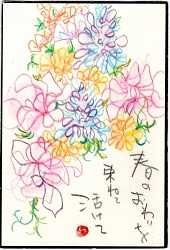 春のおわりを
束ねて
活けて